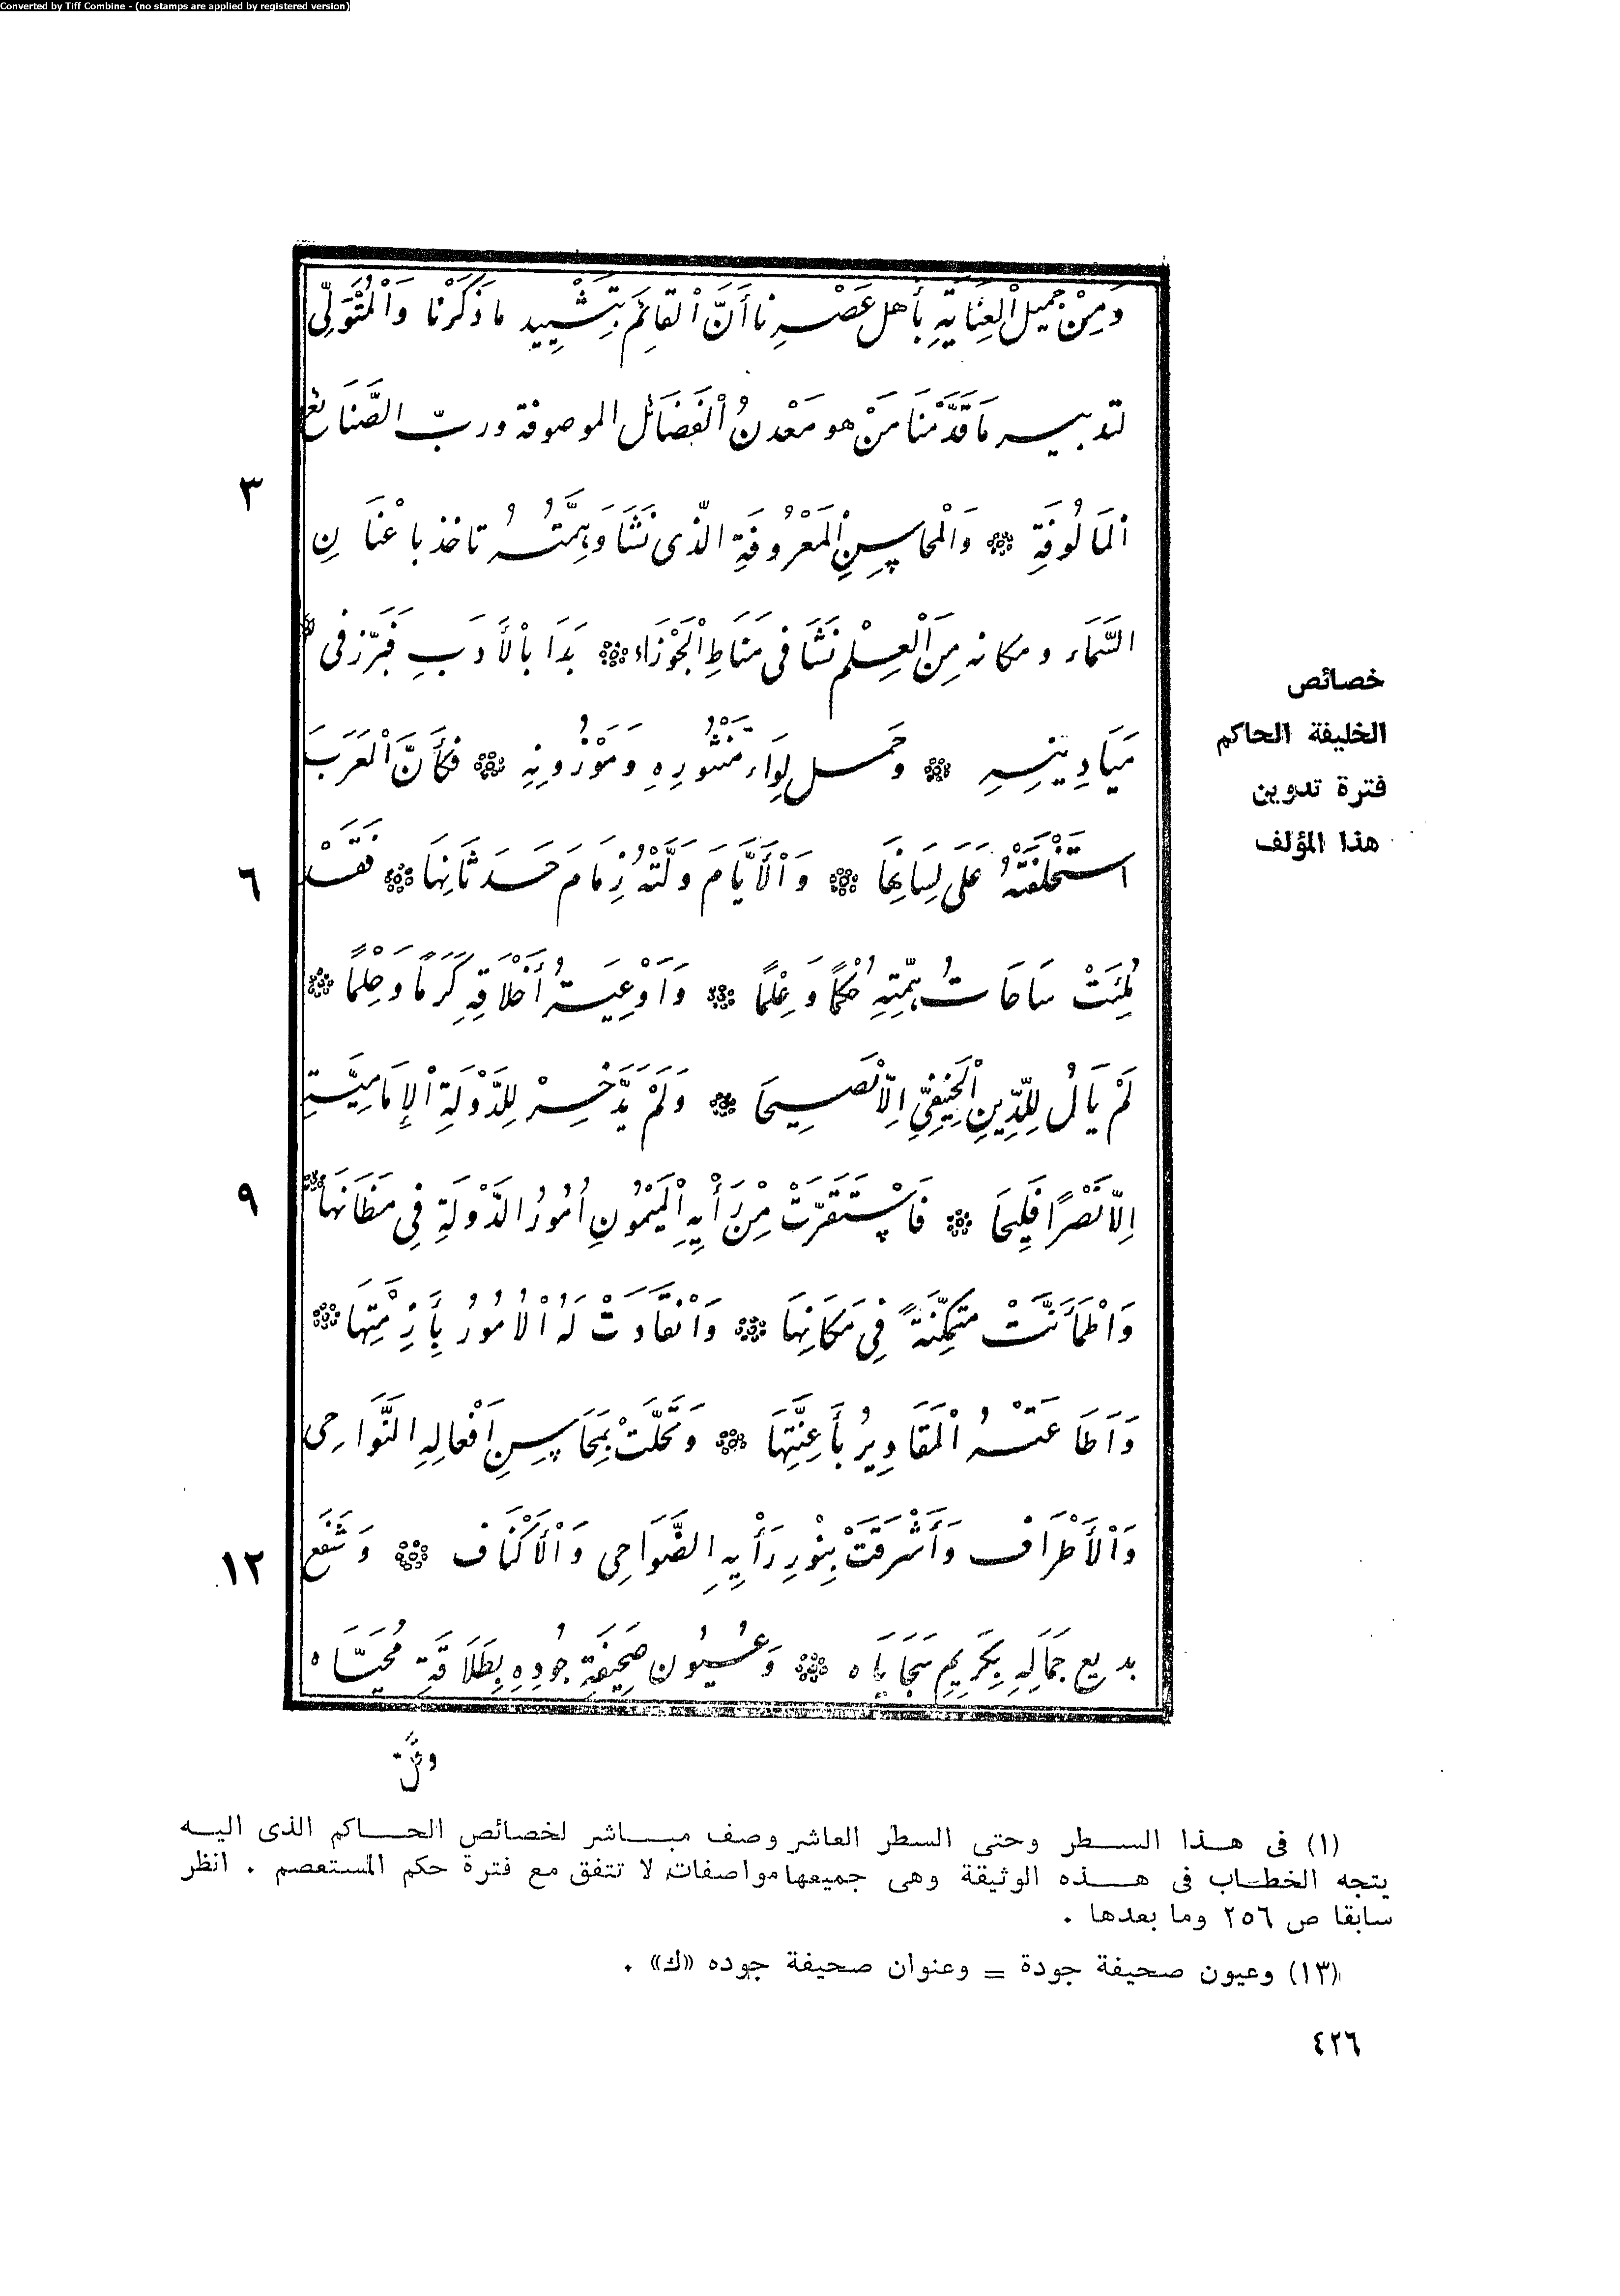 Converted by Tiff Combine - (no stamps are applied by registered version)
وَمِنْ جَمِيلِ الْعِنَايَةِ بِأَهلِ عَصْرِنَا أَنَّ الْقَائِمَ بِتَشْيِيدِ مَا ذَكَرْنَا وَالْمُتَوَلِّى
لتدبير مَا قَدَّمْنَا مَنْ هو مَعْدنُ الْفَضَائل الموصوفة ورب الصَّنَائع
٣
الْمَالُوفَةِ ۞ وَالْمحاسِنِ الْمَعْرُوفَةِ الّذى نَشَا وَهِمَّتُهُ تاخذ باعْنَانِ
السَّمَاء ومكانه مِنَ الْعِلْم نَشَا فى مَنَاطِ الْجَوْزَاء ۞ بَدَا بالْأَدَبِ فَبَرّز فى
خصائص
الخليفة الحاكم
فترة تدوين
هذا المؤلف
مَيَادِينِهِ ۞ وحَمل لِوَاء مَنْثُورِهِ وَمَوْزُونِهِ ۞ فكَأَنَّ الْعَرَبَ
استَخْلَفَتْهُ عَلَى لِسَانِهَا ۞ وَالْأَيَّامَ وَلَّتْهُ زِمَامَ حَدَثَانِهَا ۞ فَقَدْ
٦
مُلِئَتْ سَاحَاتُ هِمَّتِهِ حُكْمًا وَعِلْمًا ۞ وَاَوْعِيَةُ أَخْلَاقِهِ كَرَمًا وَحِلْمًا ۞
لَمْ يَالُ لِلدِّينِ الْحَنِيفِيِّ اِلّا نَصِيحَا ۞ وَلَمْ يَدَّخِرْ لِلدَّوْلَةِ الْإِمَامِيَّةِ
اِلّا نَصْرًا فَلِيحَا ۞ فَاسْتَقَرَّتْ مِنْ رَأْيِهِ الْمَيْمُونِ اُمُورُ الدَّوْلَةِ فِى مَظَانِهَا ۞
٩
وَاطْمَأَنَّتْ مَتَمَكِّنَةً فِى مَكَانِهَا ۞ وَانْقَادَتْ لَهُ الْاُمُورُ بِأَزِمَّتِهَا ۞
وَاَطَاعَتْهُ الْمَقَادِيرُ بأَعِنَّتِهَا ۞ وَتَحَلَّتْ بِمَحَاسِنِ اَفْعَالِهِ النَّوَاحِى
وَالْأَطْرَاف وَأَشْرَقَتْ بِنُورِ رَأْيِهِ الضَّوَاحِى وَالْأَكْنَاف ۞ وَشَفَع
١٢
بديع جَمَالِهِ بِكَرِيمِ سَجَايَاه ۞ وَعُيُون صَحِيفَةِ جُودِهِ بِطَلَاقَةِ مُحَيَّاه
(١) فى هذا السطر وحتى السطر العاشر وصف مباشر لخصائص الحاكم الذى اليه
يتجه الخطاب فى هذه الوثيقة وهى جميعها مواصفات لا تتفق مع فترة حكم المستعصم . انظر
سابقا ص ٢٥٦ وما بعدها .
(١٣) وعيون صحيفة جودة = وعنوان صحيفة جوده «ك» .
٤٢٦